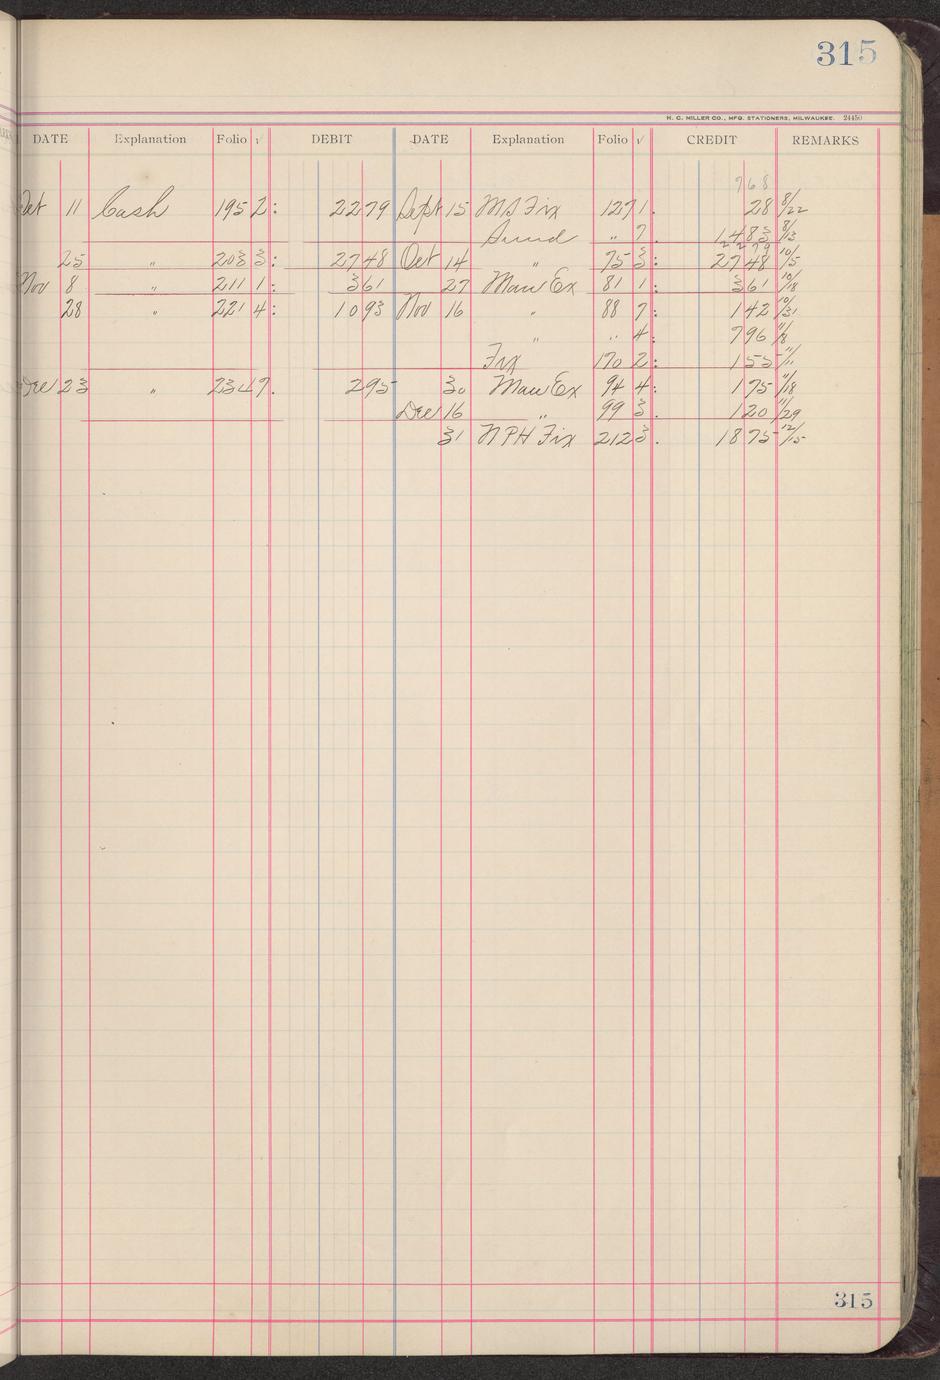 315
H. C. MILLER CO., MFG. STATIONERS, MILWAUKEE. 24450
DATE Explanation Folio √ DEBIT DATE Explanation Folio √ CREDIT REMARKS
768
Oct 11 Cash 195 2: 22 79 Sept 15 MS Fix 127 1. 28 8/22
Sund " 7. 14 83 8/13
22 79
25 " 203 3: 27 48 Oct 14 " 75 3: 27 48 10/5
Nov 8 " 211 1: 3 61 27 Man Ex 81 1: 3 61 10/18
28 " 221 4: 10 93 Nov 16 " 88 7: 1 42 10/31
" " 4. 7 96 11/8
Fix 170 2: 1 55 11/11
Dec 23 " 234 7. 2 95 30 Man Ex 94 4: 1 75 11/18
Dec 16 " 99 3. 1 20 11/29
31 NPH Fix 212 3. 18 75 12/15
315